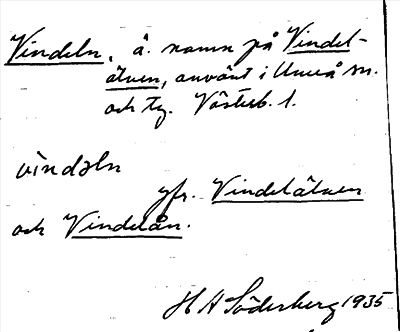 Vindeln, ä. namn på Vindel-
älven, använt i Umeå sn.
och tg. Västerb. l.
vìndəln
jfr. Vindelälven
och Vindelån.
H A Söderberg 1935